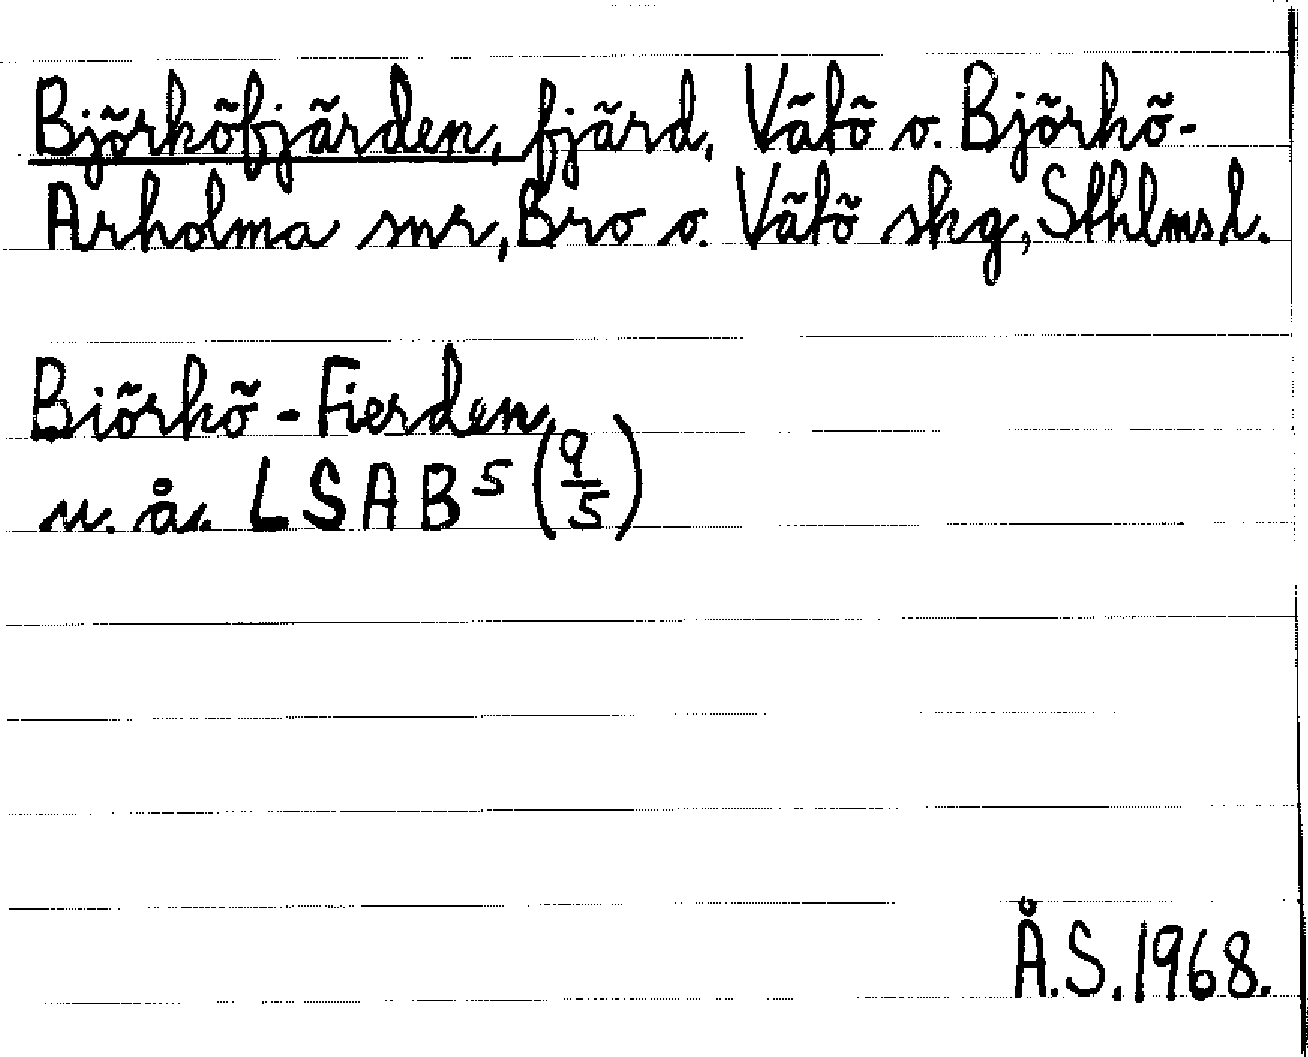 Björköfjärden, fjärd, Vätö o. Björkö-
Arholma snr, Bro o. Vätö skg, Sthlms l.
Biörkö-Fierden,
u. å. LSA B5 (9/5)
Å.S. 1968.